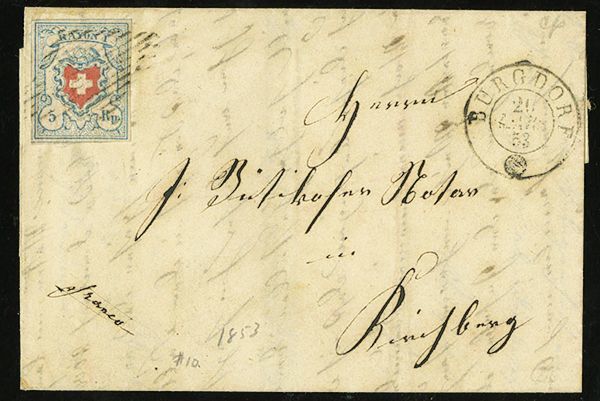 RAYON I
5 Rp
BURGDORF
20
53
Herrn
J: Bütikofer Notar
in
Kirchberg
franco
1853
#10